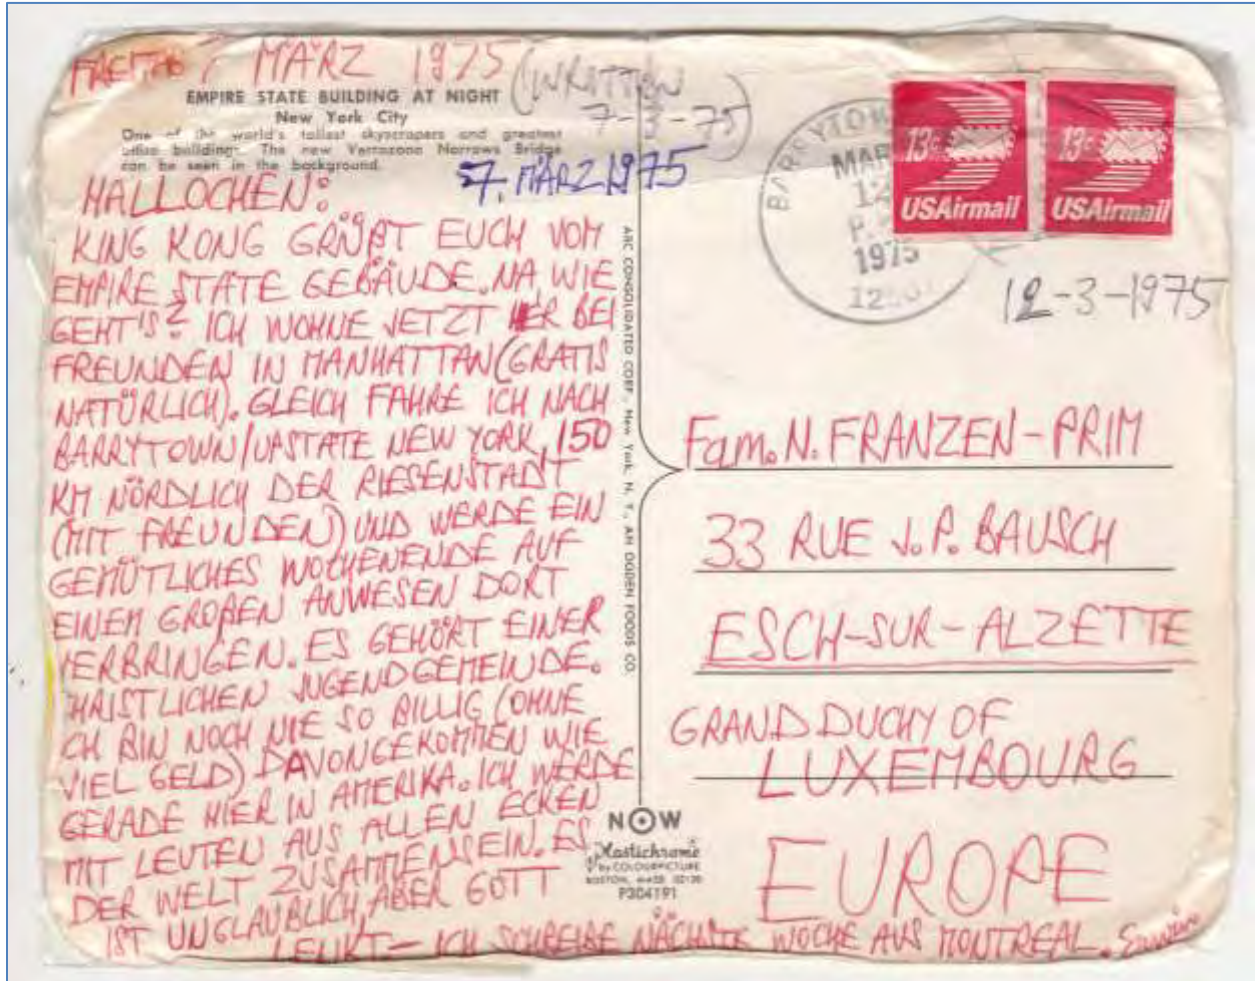 FREITAG 7 MÄRZ 1975
(WRITTEN
7-3-75)
EMPIRE STATE BUILDING AT NIGHT
New York City
One of the world's tallest skyscrapers and greatest
office buildings. The new Verrazano Narrows Bridge
can be seen in the background.
7. MÄRZ 1975
HALLOCHEN:
KING KONG GRÜßT EUCH VOM
EMPIRE STATE GEBÄUDE. NA, WIE
GEHT'S? ICH WOHNE JETZT HIER BEI
FREUNDEN IN MANHATTAN (GRATIS
NATÜRLICH). GLEICH FAHRE ICH NACH
BARRYTOWN/UPSTATE NEW YORK, 150
KM NÖRDLICH DER RIESENSTADT
(MIT FREUNDEN) UND WERDE EIN
GEMÜTLICHES WOCHENENDE AUF
EINEM GROßEN ANWESEN DORT
VERBRINGEN. ES GEHÖRT EINER
CHRISTLICHEN JUGENDGEMEINDE.
ICH BIN NOCH NIE SO BILLIG (OHNE
VIEL GELD) DAVONGEKOMMEN WIE
GERADE HIER IN AMERIKA. ICH WERDE
MIT LEUTEN AUS ALLEN ECKEN
DER WELT ZUSAMMENSEIN. ES
IST UNGLAUBLICH, ABER GOTT
LENKT — ICH SCHREIBE NÄCHSTE WOCHE AUS MONTREAL. Erwin
ABC CONSOLIDATED CORP., New York, N. Y., AN OGDEN FOODS CO.
NOW
Plastichrome
by COLOURPICTURE
BOSTON, MASS 02130
P304191
BARRYTOWN
MAR
12
1975
13c
USAirmail
13c
USAirmail
12-3-1975
Fam. N. FRANZEN-PRIM
33 RUE J. P. BAUSCH
ESCH-SUR-ALZETTE
GRAND DUCHY OF
LUXEMBOURG
EUROPE